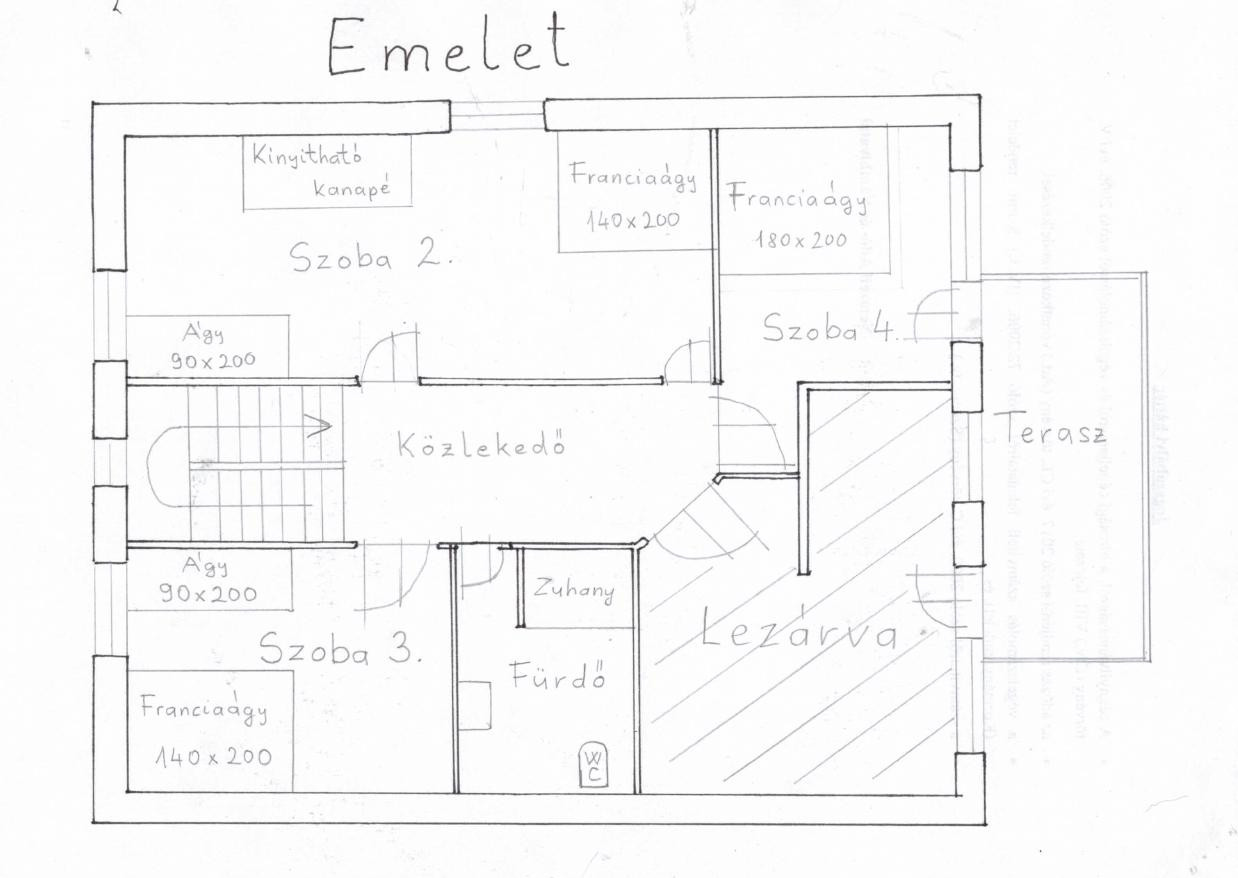 Emelet
Kinyitható
kanapé
Franciaágy
140x200
Franciaágy
180x200
Szoba 2.
Szoba 4.
Ágy
90x200
Közlekedő
Terasz
Ágy
90x200
Zuhany
Szoba 3.
Fürdő
Lezárva
Franciaágy
140x200
WC